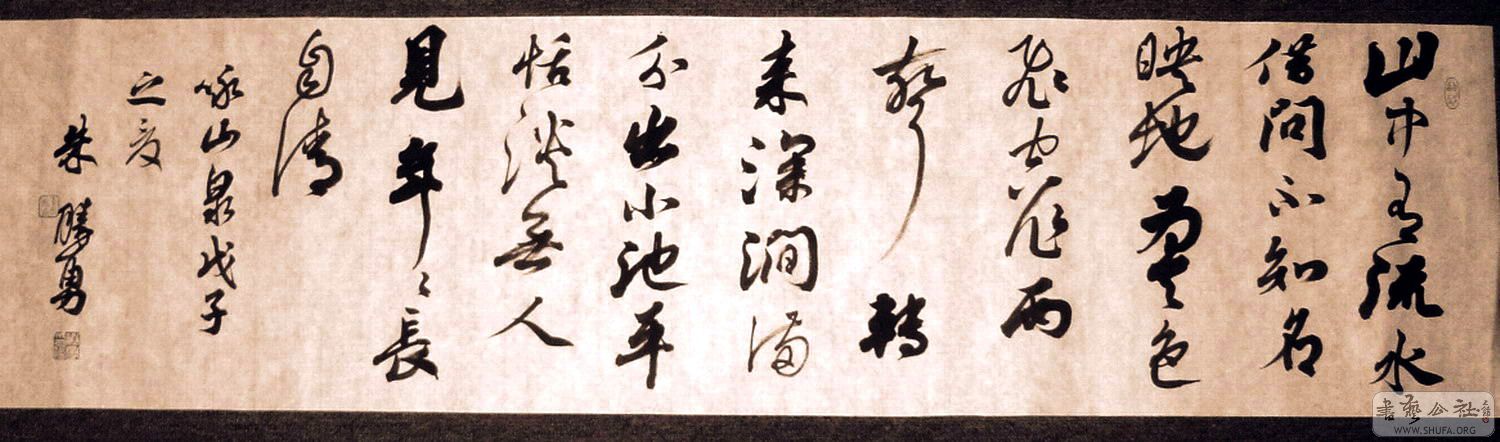 山中有流水
借问不知名
映地为天色
飞空作雨
声转
来深涧满
分出小池平
恬澹无人
見年〻長
自清
咏山泉戊子
之夏
朱勝勇
書藝公社
WWW.SHUFA.ORG